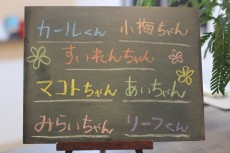 カールくん 小梅ちゃん
すいれんちゃん
マコトちゃん あいちゃん
みらいちゃん リーフくん